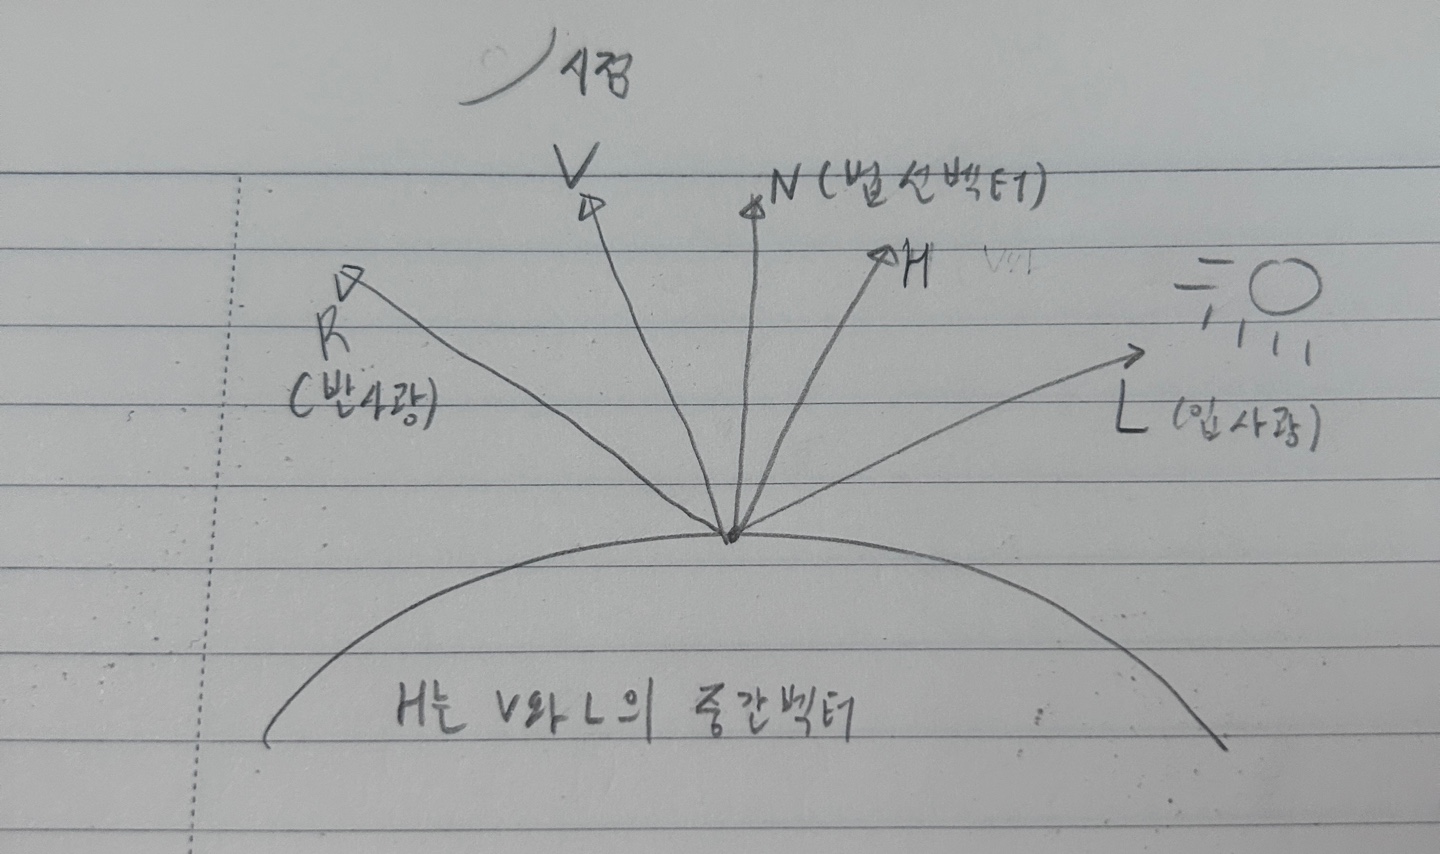 시점
V
N (법선벡터)
H
R
(반사광)
L (입사광)
H는 V와 L의 중간벡터